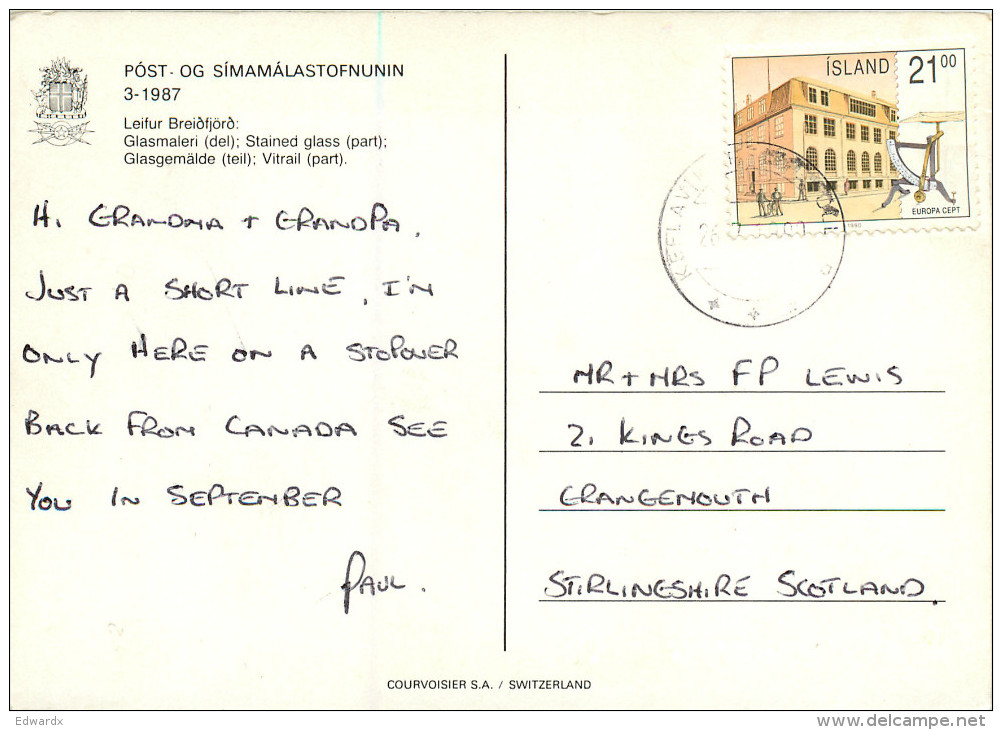 PÓST- OG SÍMAMÁLASTOFNUNIN
3-1987
Leifur Breiðfjörð:
Glasmaleri (del); Stained glass (part);
Glasgemälde (teil); Vitrail (part).
HI GRANDMA + GRANDPA,
JUST A SHORT LINE, I'M
ONLY HERE ON A STOPOVER
BACK FROM CANADA SEE
YOU IN SEPTEMBER
PAUL.
ÍSLAND 2100
EUROPA CEPT
1990
KEFLAVÍK
MR + MRS FP LEWIS
21 KINGS ROAD
GRANGEMOUTH
STIRLINGSHIRE SCOTLAND.
COURVOISIER S.A. / SWITZERLAND
Edwardx
delcampe.net